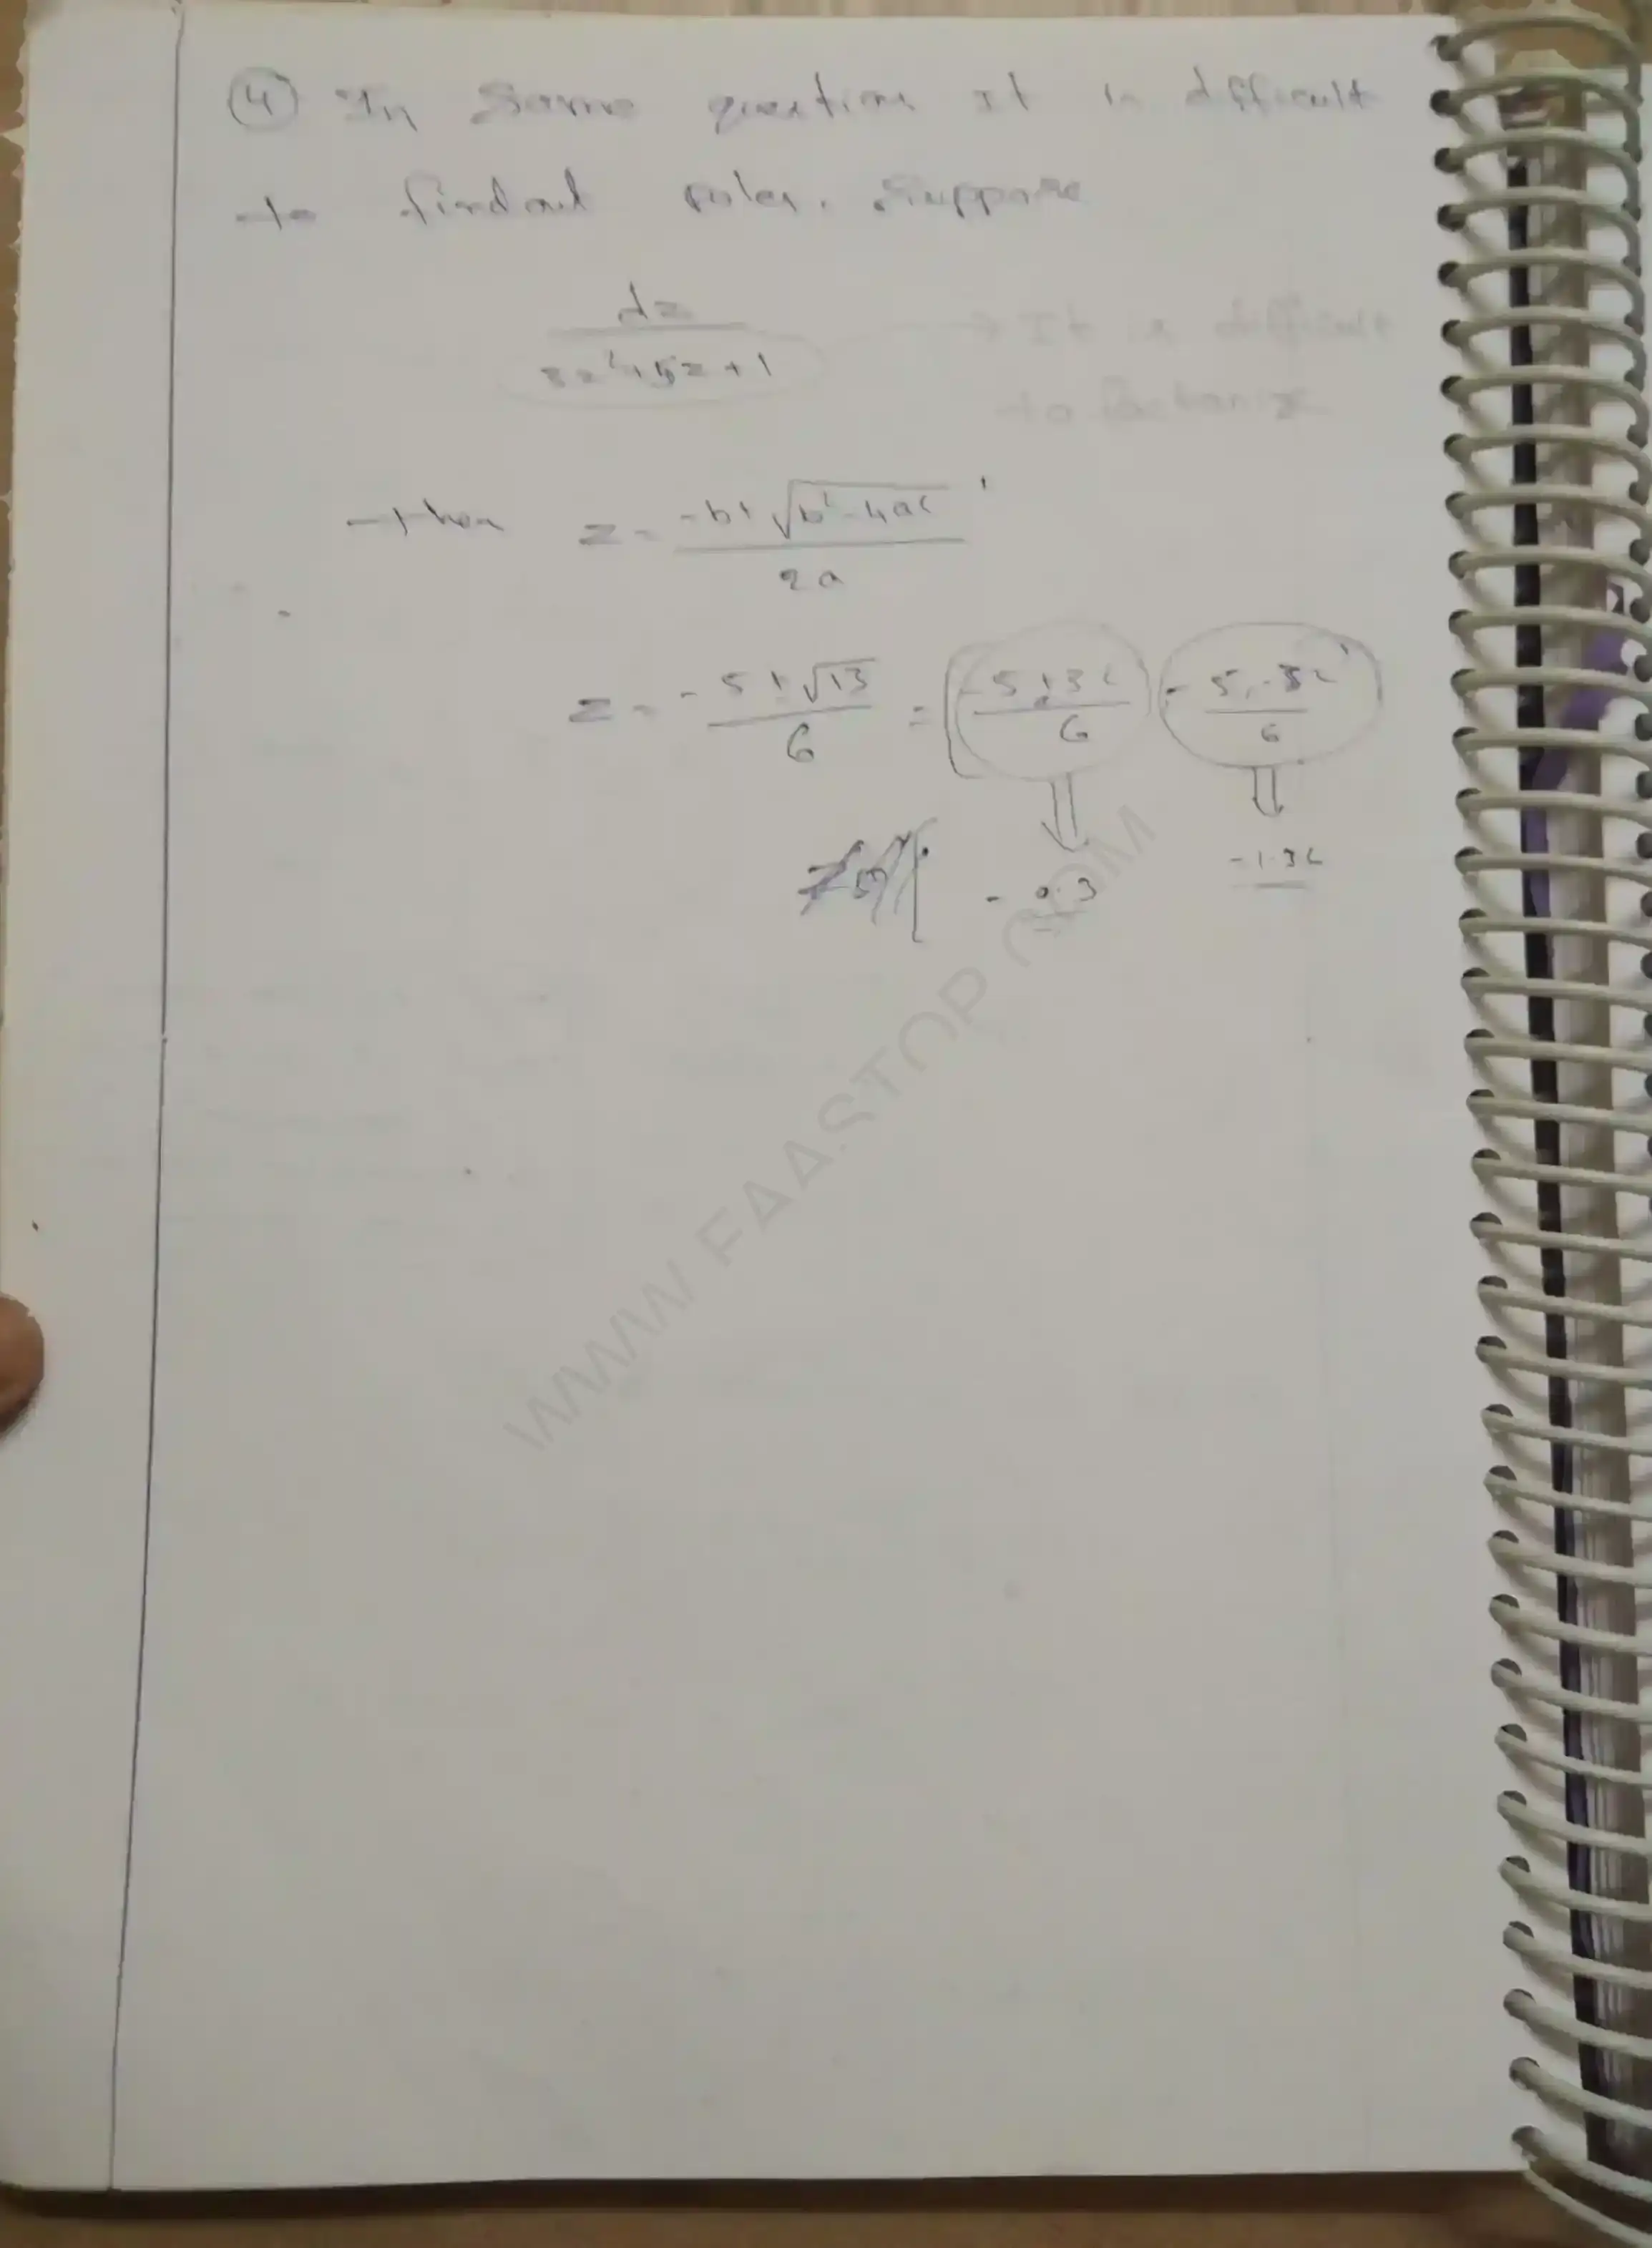 ④ In some question It is difficult
to findout poles. Suppose
dz
3z²+5z+1
→ It is difficult
to factorize
then z = -b±√b²-4ac
2a
z = -5±√13 / 6 = -5+3.6 / 6 , -5-3.6 / 6
-0.3
-1.36
WWW.FAASTOP.COM